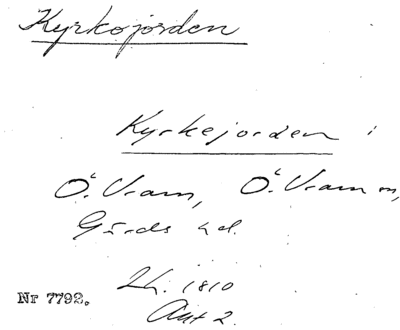 Kyrkojorden
Kyrkejorden i
Ö. Vram, Ö. Vram sn,
Gärds hd.
Lh. 1810
Nr 7792.
Akt 2.